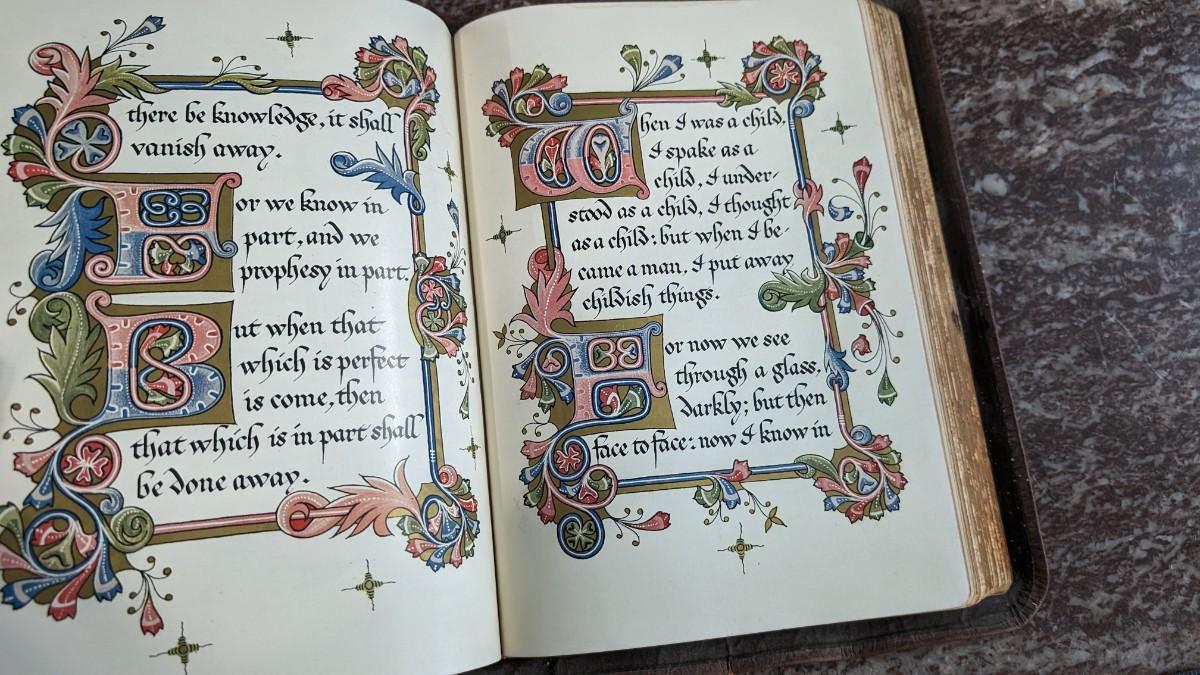 there be knowledge, it shall
vanish away.
For we know in
part, and we
prophesy in part.
But when that
which is perfect
is come, then
that which is in part shall
be done away.
When I was a child,
I spake as a
child, I under-
stood as a child, I thought
as a child: but when I be-
came a man, I put away
childish things.
For now we see
through a glass,
darkly; but then
face to face: now I know in